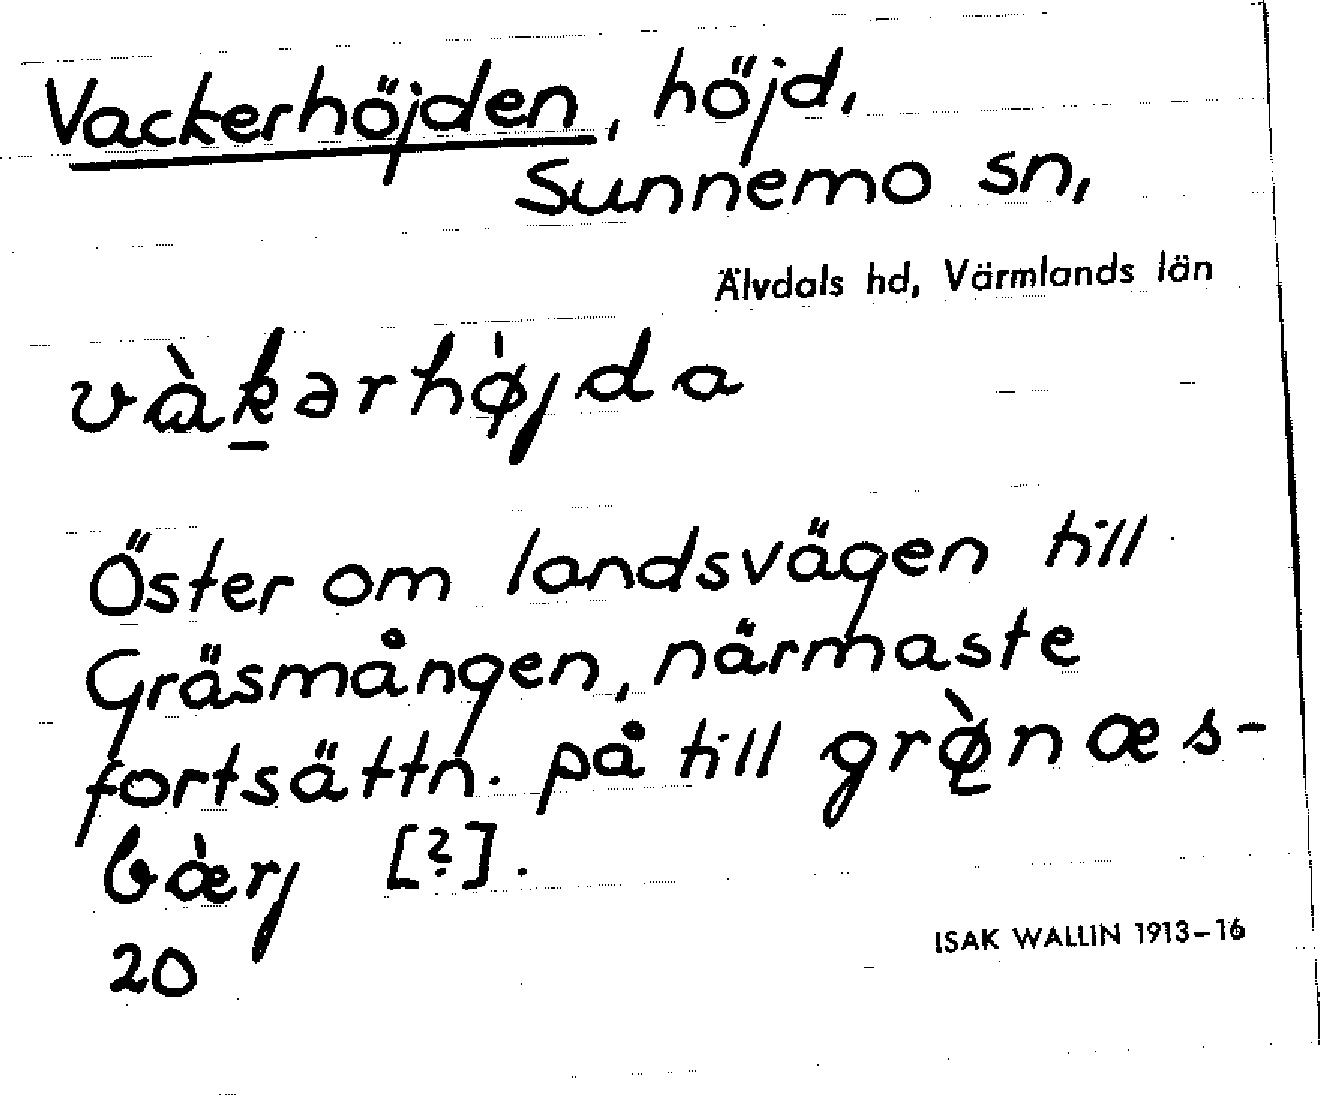 Vackerhöjden, höjd,
Sunnemo sn,
Älvdals hd, Värmlands län
vàk̲ərhø̀jda
Öster om landsvägen till
Gräsmången, närmaste
fortsättn. på till grø̲̀næs-
bæ̀rj [?].
20
ISAK WALLIN 1913–16